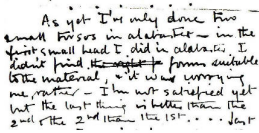 As yet I've only done two
small torsos in alabaster – in the
first small head I did in alabaster I
didn't find forms suitable
to the material, & it was worrying
me, rather – I'm not satisfied yet
but the last thing is better than the
2nd & the 2nd than the 1st .... Last